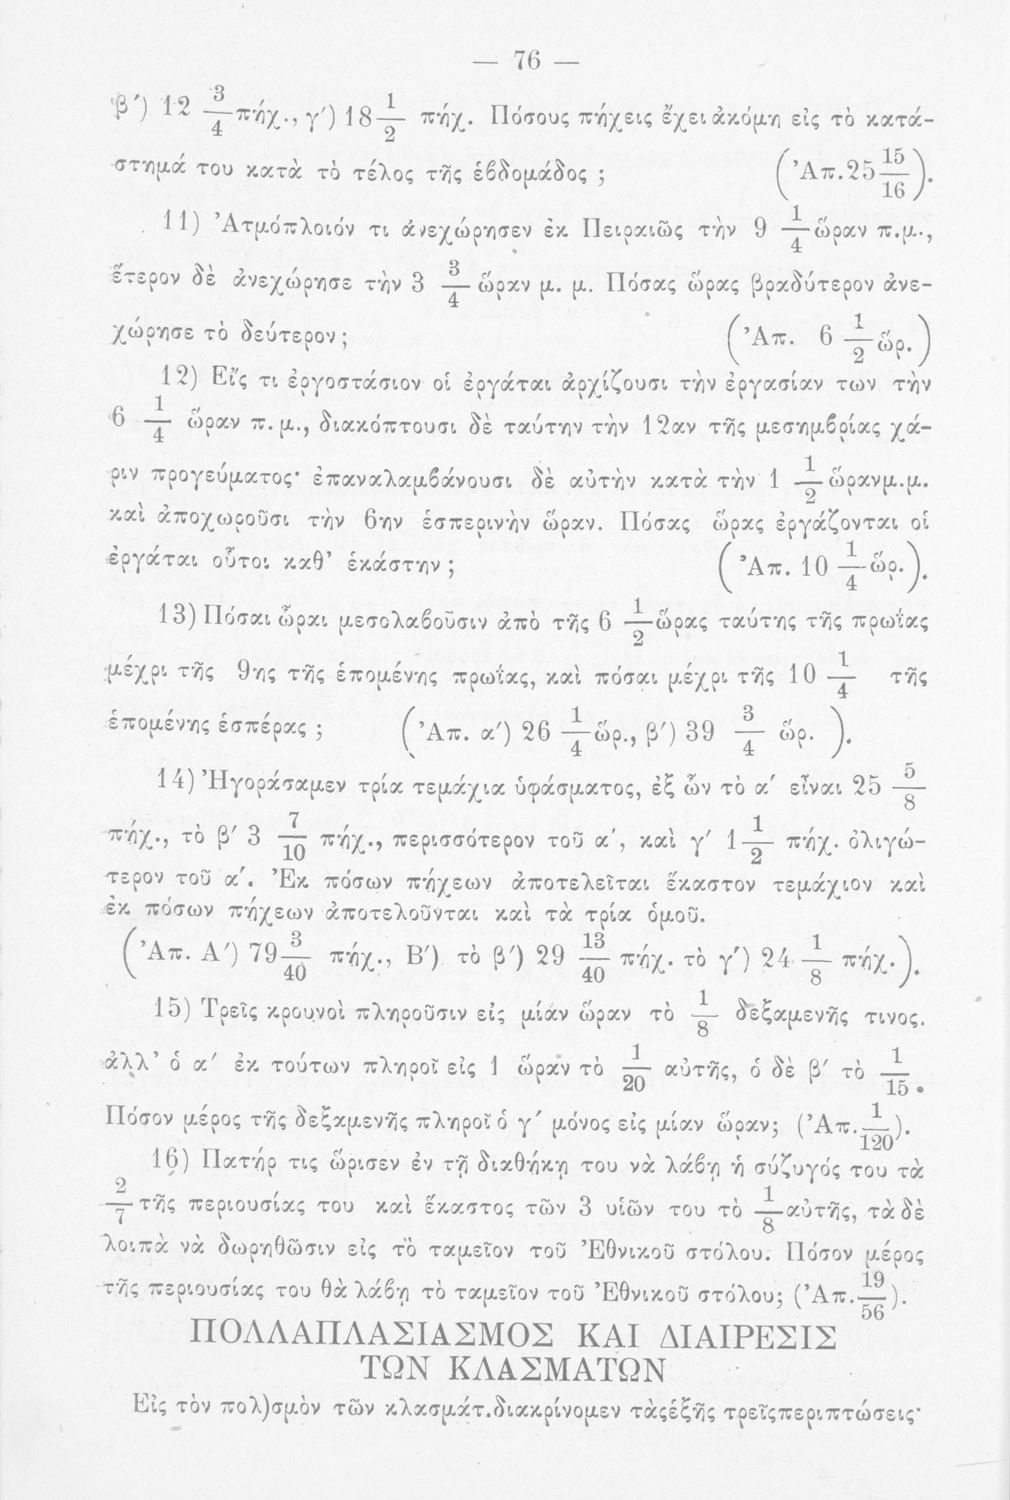 — 76 —
β') 12 3/4 πήχ., γ') 18 1/2 πήχ. Πόσους πήχεις ἔχει ἀκόμη εἰς τὸ κατά-
στημά του κατὰ τὸ τέλος τῆς ἑβδομάδος ; (Ἀπ. 25 15/16).
11) Ἀτμόπλοιόν τι ἀνεχώρησεν ἐκ Πειραιῶς τὴν 9 1/4 ὥραν π.μ.,
ἕτερον δὲ ἀνεχώρησε τὴν 3 3/4 ὥραν μ. μ. Πόσας ὥρας βραδύτερον ἀνε-
χώρησε τὸ δεύτερον ; (Ἀπ. 6 1/2 ὥρ.)
12) Εἴς τι ἐργοστάσιον οἱ ἐργάται ἀρχίζουσι τὴν ἐργασίαν των τὴν
6 1/4 ὥραν π.μ., διακόπτουσι δὲ ταύτην τὴν 12αν τῆς μεσημβρίας χά-
ριν προγεύματος· ἐπαναλαμβάνουσι δὲ αὐτὴν κατὰ τὴν 1 1/2 ὥραν μ.μ.
καὶ ἀποχωροῦσι τὴν 6ην ἑσπερινὴν ὥραν. Πόσας ὥρας ἐργάζονται οἱ
ἐργάται οὗτοι καθ' ἑκάστην ; (Ἀπ. 10 1/4 ὥρ.).
13) Πόσαι ὧραι μεσολαβοῦσιν ἀπὸ τῆς 6 1/2 ὥρας ταύτης τῆς πρωΐας
μέχρι τῆς 9ης τῆς ἑπομένης πρωΐας, καὶ πόσαι μέχρι τῆς 10 1/4 τῆς
ἑπομένης ἑσπέρας ; (Ἀπ. α') 26 1/4 ὥρ., β') 39 3/4 ὥρ. ).
14) Ἠγοράσαμεν τρία τεμάχια ὑφάσματος, ἐξ ὧν τὸ α' εἶναι 25 5/8
πήχ., τὸ β' 3 7/10 πήχ., περισσότερον τοῦ α', καὶ γ' 1 1/2 πήχ. ὀλιγώ-
τερον τοῦ α'. Ἐκ πόσων πήχεων ἀποτελεῖται ἕκαστον τεμάχιον καὶ
ἐκ πόσων πήχεων ἀποτελοῦνται καὶ τὰ τρία ὁμοῦ.
(Ἀπ. Α') 79 3/40 πήχ., Β') τὸ β') 29 13/40 πήχ. τὸ γ') 24 1/8 πήχ.).
15) Τρεῖς κρουνοὶ πληροῦσιν εἰς μίαν ὥραν τὸ 1/8 δεξαμενῆς τινος.
ἀλλ' ὁ α' ἐκ τούτων πληροῖ εἰς 1 ὥραν τὸ 1/20 αὐτῆς, ὁ δὲ β' τὸ 1/15.
Πόσον μέρος τῆς δεξαμενῆς πληροῖ ὁ γ' μόνος εἰς μίαν ὥραν; (Ἀπ. 1/120).
16) Πατήρ τις ὥρισεν ἐν τῇ διαθήκῃ του νὰ λάβῃ ἡ σύζυγός του τὰ
2/7 τῆς περιουσίας του καὶ ἕκαστος τῶν 3 υἱῶν του τὸ 1/8 αὐτῆς, τὰ δὲ
λοιπὰ νὰ δωρηθῶσιν εἰς τὸ ταμεῖον τοῦ Ἐθνικοῦ στόλου. Πόσον μέρος
τῆς περιουσίας του θὰ λάβῃ τὸ ταμεῖον τοῦ Ἐθνικοῦ στόλου; (Ἀπ. 19/56).
ΠΟΛΛΑΠΛΑΣΙΑΣΜΟΣ ΚΑΙ ΔΙΑΙΡΕΣΙΣ
ΤΩΝ ΚΛΑΣΜΑΤΩΝ
Εἰς τὸν πολ)σμὸν τῶν κλασμάτ. διακρίνομεν τὰς ἑξῆς τρεῖς περιπτώσεις·